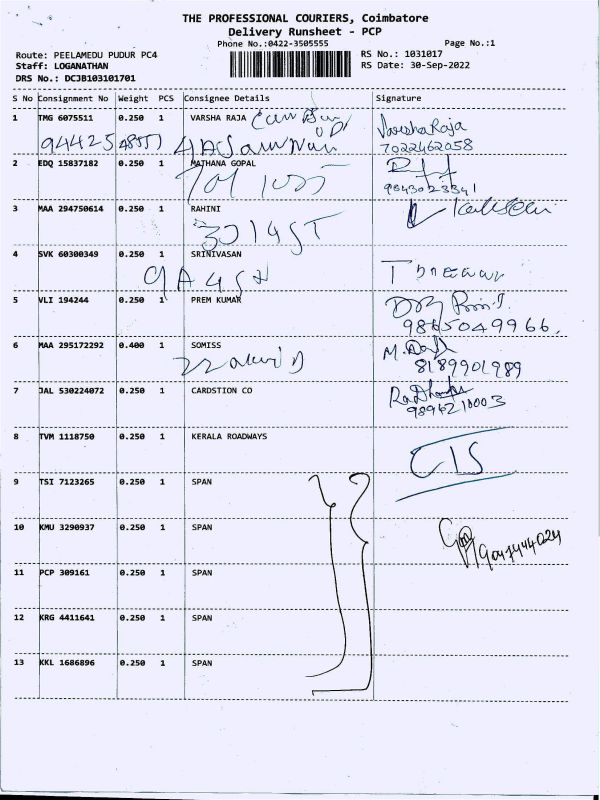 THE PROFESSIONAL COURIERS, Coimbatore
Delivery Runsheet - PCP
Phone No.:0422-3505555
Page No.:1
Route: PEELAMEDU PUDUR PC4
RS No.: 1031017
Staff: LOGANATHAN
RS Date: 30-Sep-2022
DRS No.: DCJB103101701
S No Consignment No Weight PCS Consignee Details Signature
1 TMG 6075511 0.250 1 VARSHA RAJA
VarshaRaja
7022462058
2 EDQ 15837182 0.250 1 MATHANA GOPAL
9843023341
3 MAA 294750614 0.250 1 RAHINI
4 SVK 60300349 0.250 1 SRINIVASAN
5 VLI 194244 0.250 1 PREM KUMAR
9865049966.
6 MAA 295172292 0.400 1 SOMISS
8189901989
7 JAL 530224072 0.250 1 CARDSTION CO
9894210003
8 TVM 1118750 0.250 1 KERALA ROADWAYS
9 TSI 7123265 0.250 1 SPAN
10 KMU 3290937 0.250 1 SPAN
11 PCP 309161 0.250 1 SPAN
12 KRG 4411641 0.250 1 SPAN
13 KKL 1686896 0.250 1 SPAN